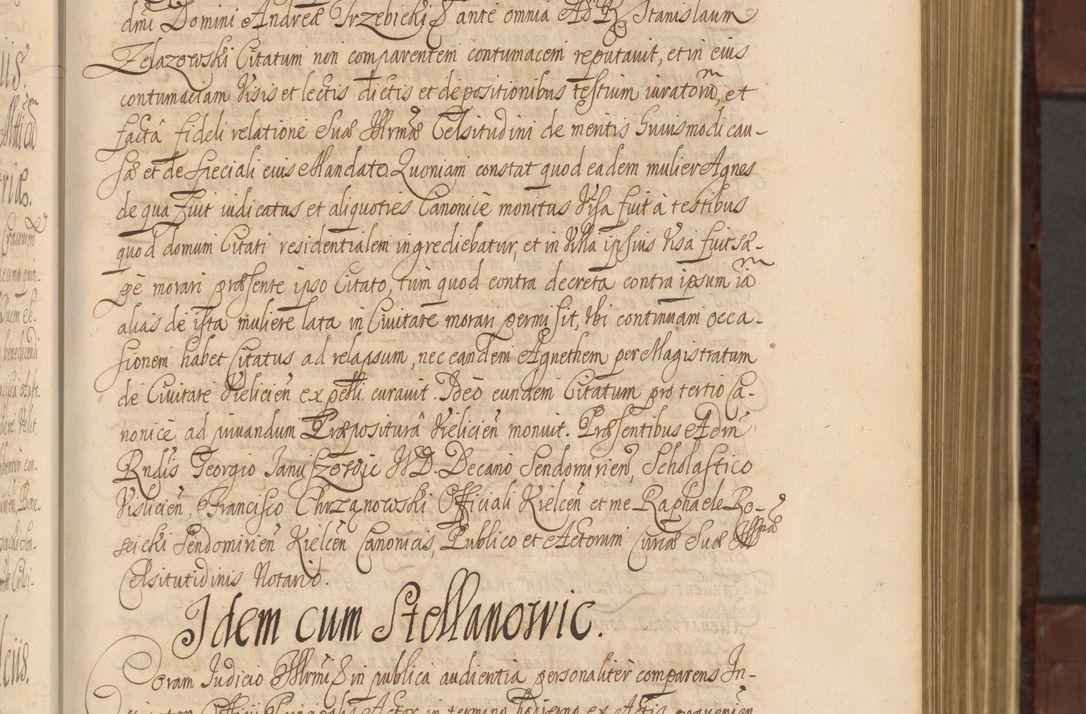 dmi Domini Andreæ Trzebicki & ante omnia Ad R. Stanislaum
Zelazowski Citatum non comparentem contumacem reputavit, et in eius
contumaciam Visis et lectis dictis et depositionibus testium iuratorũ, et
factâ fideli relatione Suæ Illrmæ Celsitudini de meritis huiusmodi cau-
sæ et de speciali eius Mandato. Quoniam constat quod eadem mulier Agnes
de qua fuit iudicatus et aliquoties Canonice monitus Visa fuit à testibus
quod domum Citati residentialem ingrediebatur, et in Villa ipsius Visa fuit sæ-
pè morari præsente ipso Citato, tum quod contra decreta contra ipsum iã
alias de ista muliere lata in Civitate morari permisit, Vbi continuam occa-
sionem habet Citatus ad relapsum, nec eandem Agnethem per Magistratum
de Civitate Kielcień expelli curavit. Ideò eundem Citatum pro tertio Ca-
nonicè ad iuvandum Præpositurâ Kielicień monuit. Præsentibus Adm
Rndis Georgio Januszowic I.V.D. Decano Sendomirien, Scholastico
Visliciens, Francisco Chrzanowski Officiali Kielceń et me Raphaele Ro-
Sendomirień Kielceń Canonicis, Publico et Actorum Curiæ Suæ Illmæ
Celsitutidinis Notario.
Idem cum Stellanowic.
Coram Judicio Illrmi & in publica audientia personaliter comparens In-
Actor in termino hodierno ex Actis